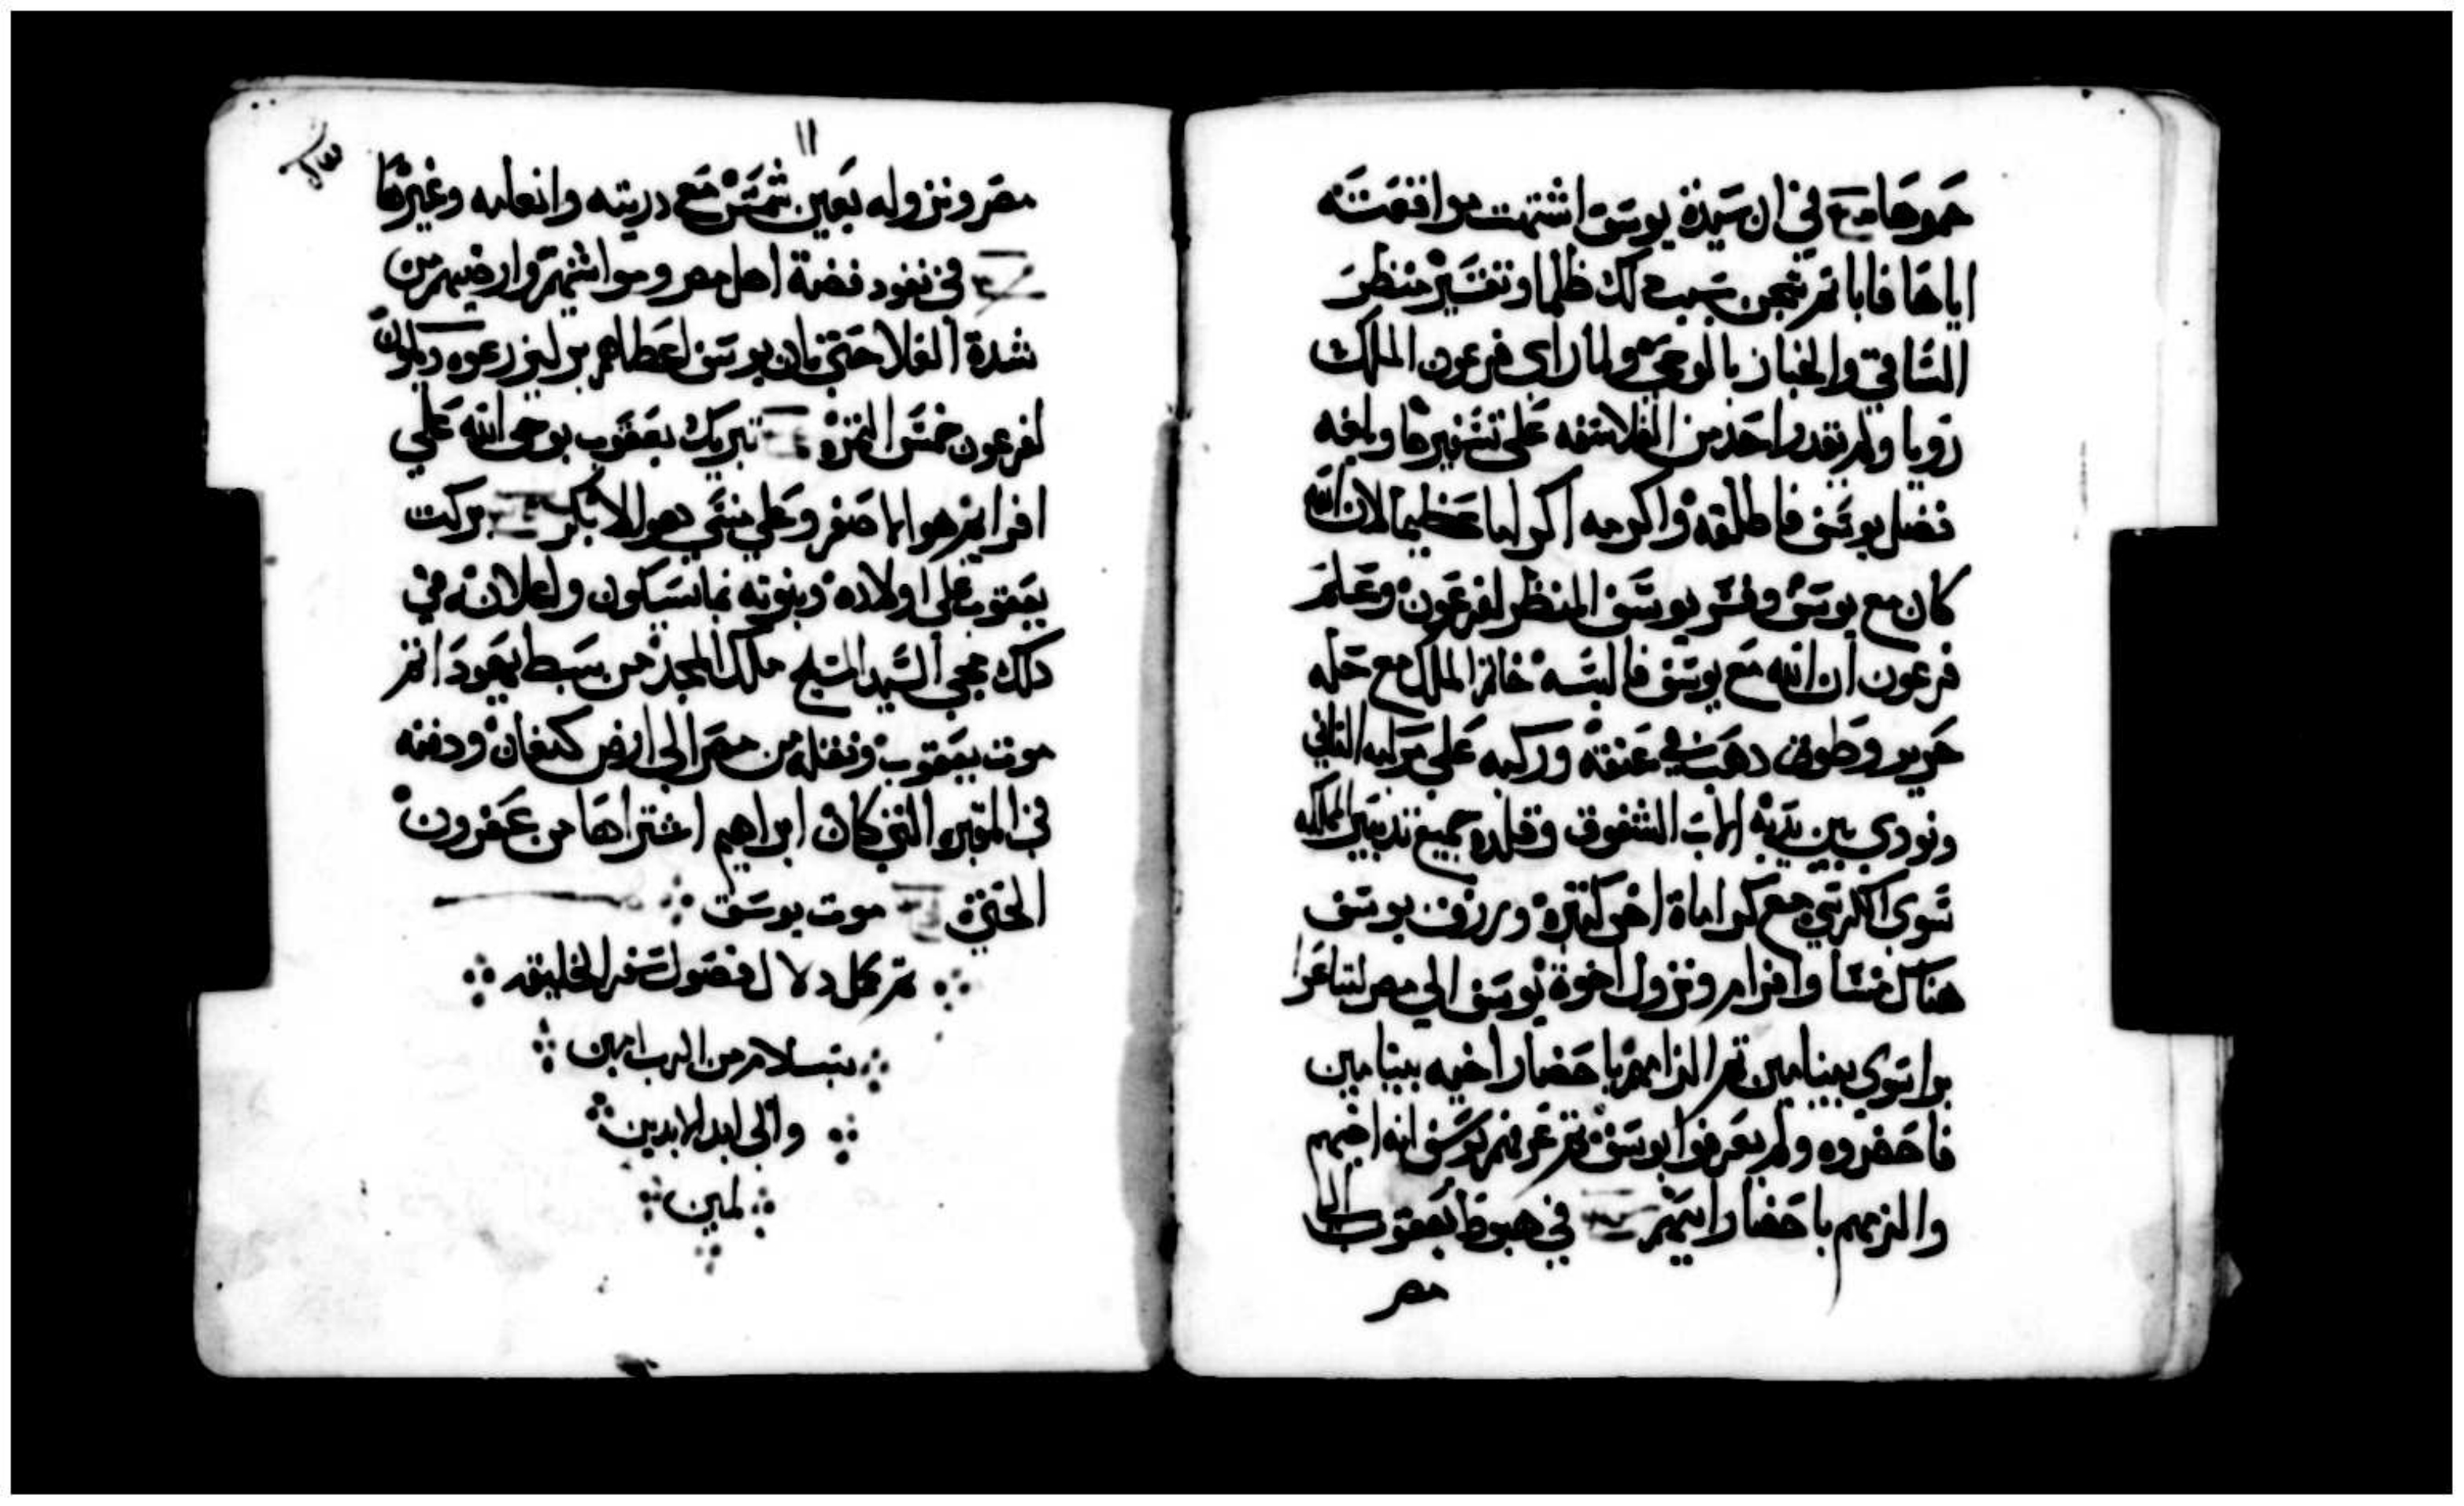 حموها في ان سيدة يوسف اشتهت موافقته
اياها فابا ثم سجن بسبب دلك ظلما وتفسير منظر
الساقي والخباز بالوحي ولما راي فرعون الملك
رويا ولم يقدر احد من الفلاسفه علي تفسيرها وبلغه
فضل يوسف فاطلقه واكرمه اكراما عظيما لان الله
كان مع يوسف وفسر يوسف المنظر لفرعون وعلم
فرعون ان الله مع يوسف فالبسه خاتم الملك مع حله
حرير وطوق دهب في عنقه وركبه علي مركبه التاني
ونودي بين يديه الاب الشفوق وقلده جميع تدبير المملكه
سوي الكرسي مع كراماة اخر كتيرة ورزق يوسف
هناك منسا وافرام ونزول اخوة يوسف الي مصر ليتاعوا
برا سوي بينامين تم الزامهم باحضار اخيه بينامين
فاحضروه ولم يعرفوا يوسف تم عرفهم يوسف انه اخيهم
والزمهم باحضار ابيهم في هبوط يعقوب الي
مصر
١١
مصر ونزوله بعين شمس مع دريته وانعامه وغيرها
في نفود فضة اهل مصر ومواشيهم وارضيهم من
شدة الغلا حتي كان يوسف اعطاهم بر ليزرعوه ويكون
لفرعون خمس التمرة تبريك يعقوب بوحي الله علي
افرايم هو الاصغر وعلي منسي وهو الاكبر بركت
يعقوب علي اولاده وبنوته بما سيكون واعلانه في
دلك بمجي السيد المسيح ملك المجد من سبط يهودا تم
موت يعقوب ونقله من مصر الي ارض كنعان ودفنه
في المقبره التي كان ابراهيم اشتراها من عفرون
الحتي موت يوسف
تم كل دلال فصول سفر الخليقه
بسلام من الرب امين
والي ابد الابدين
امين